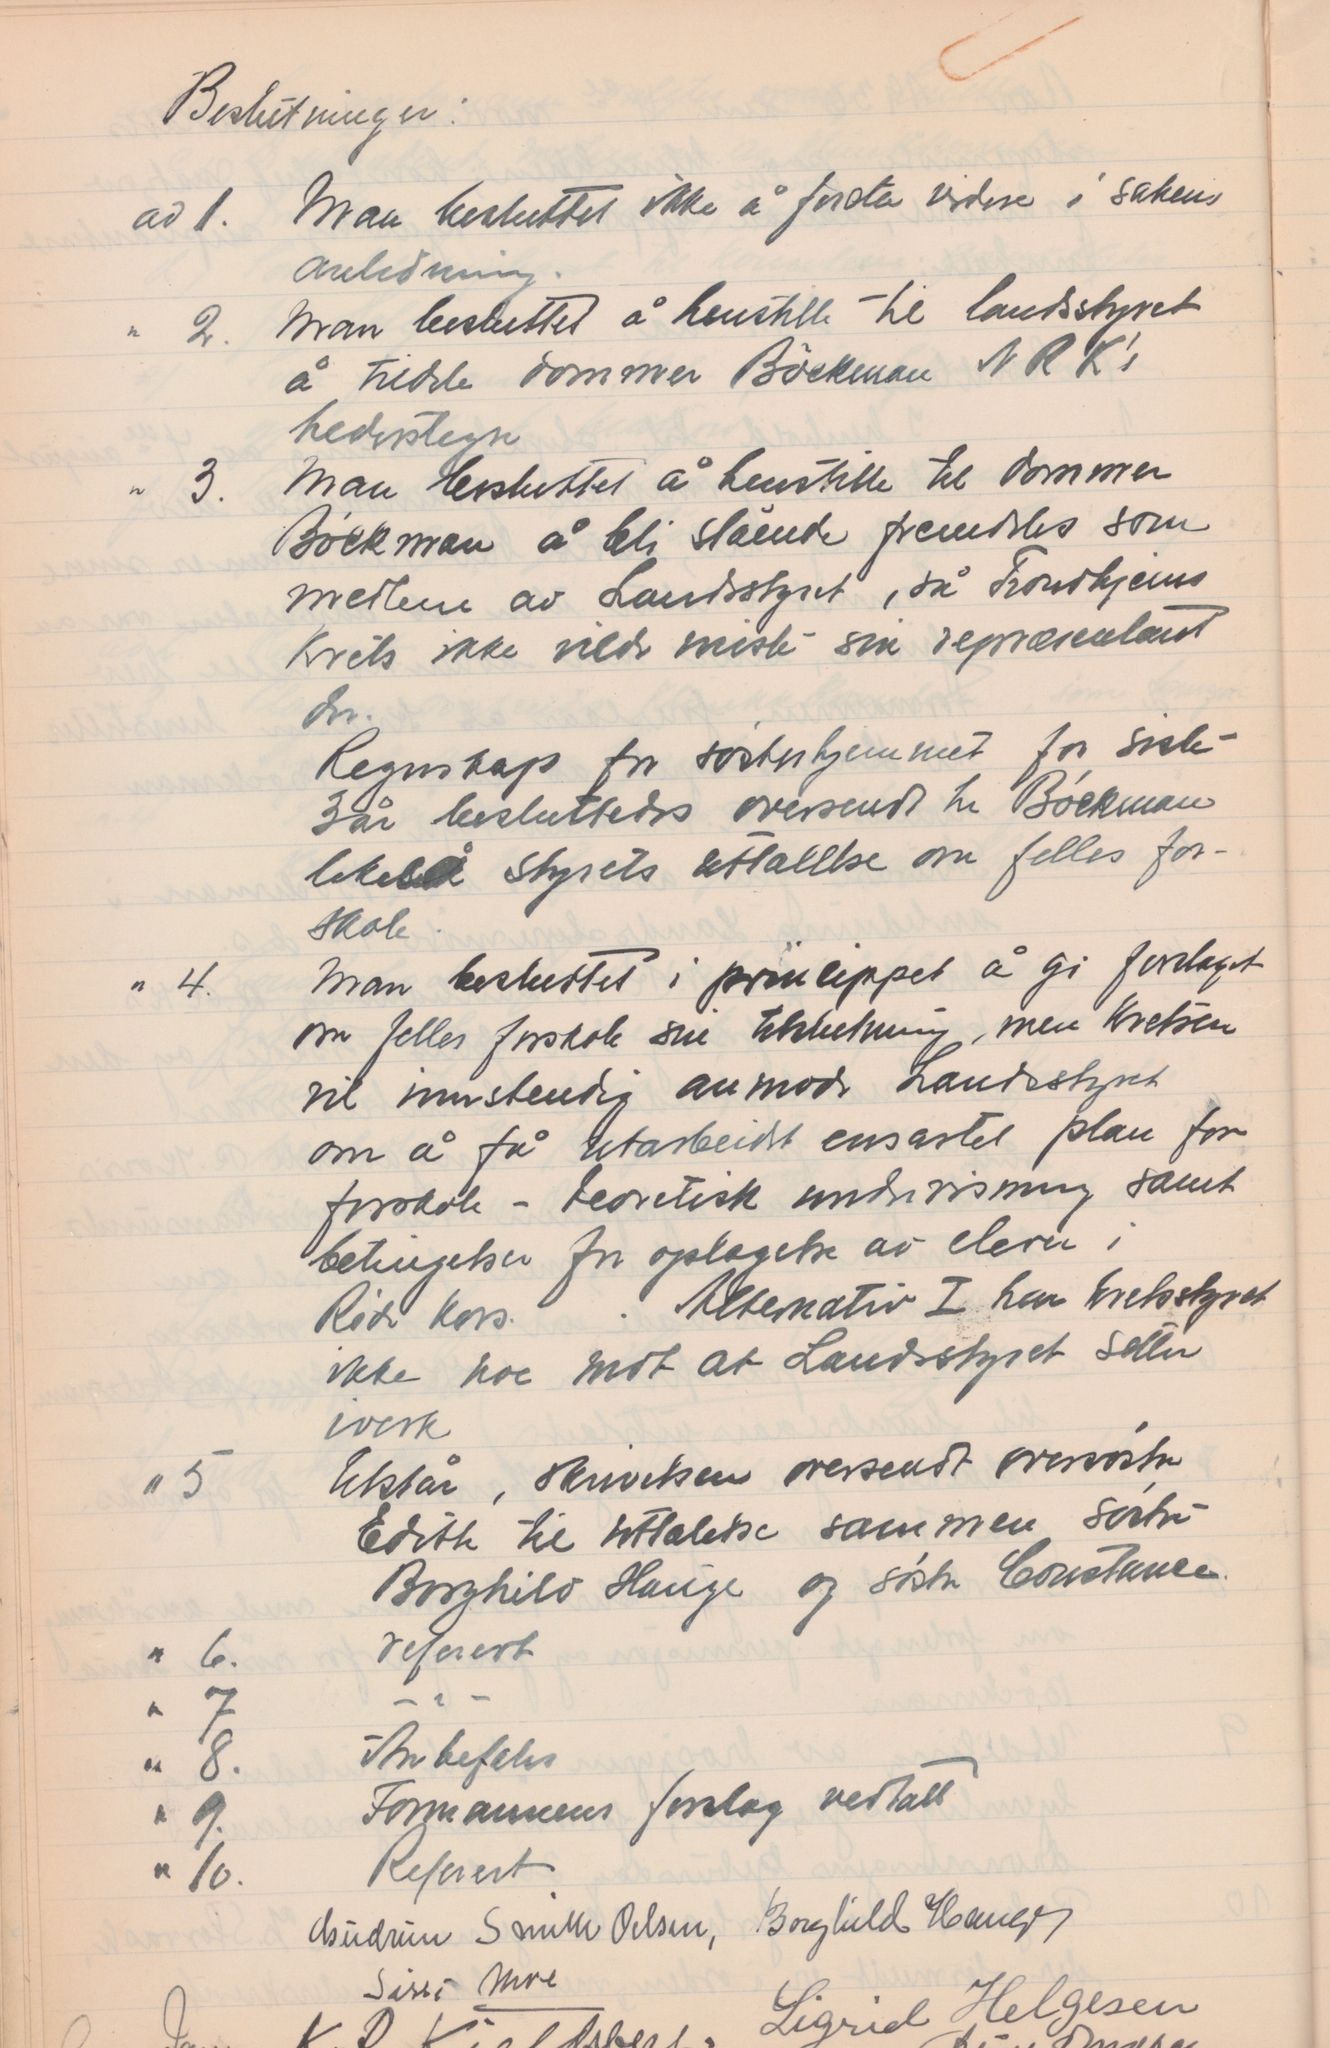 Beslutninger:
ad 1. Man besluttet ikke å foreta videre i sakens
anledning.
" 2. Man besluttet å henstille til landsstyret
å tildele dommer Böckman N R K's
hederstegn
" 3. Man besluttet å henstille til dommer
Böckman å bli stående fremdeles som
medlem av Landsstyret, då Trondhjems
Krets ikke vilde miste sin representant
der.
Regnskap for søsterhjemmet for siste
3 år besluttedes oversendt hr Böckman
likeså styrets uttallelse om felles for-
skole.
" 4. Man besluttet i princippet å gi forslaget
om felles forskole sin tilslutning, men Kretsen
vil innstendig anmode Landsstyret
om å få utarbeidet ensartet plan for
forskole - teoretisk undervisning samt
betingelser for optagelse av elever i
Røde Kors. Alternativ I har kretsstyret
ikke noe mot at Landsstyret setter
iverk
" 5 Utstår, skrivelsen oversendt oversøster
Edith til uttalelse sammen søster
Borghild Hauge og søster Constance.
" 6. referert
" 7 - " -
" 8. Anbefales
" 9. Formannens forslag vedtatt
" 10. Referert
Gudrun Smith Oelsen, Borghild Hauge
Sissi Moe
Sigrid Helgesen
K. D.